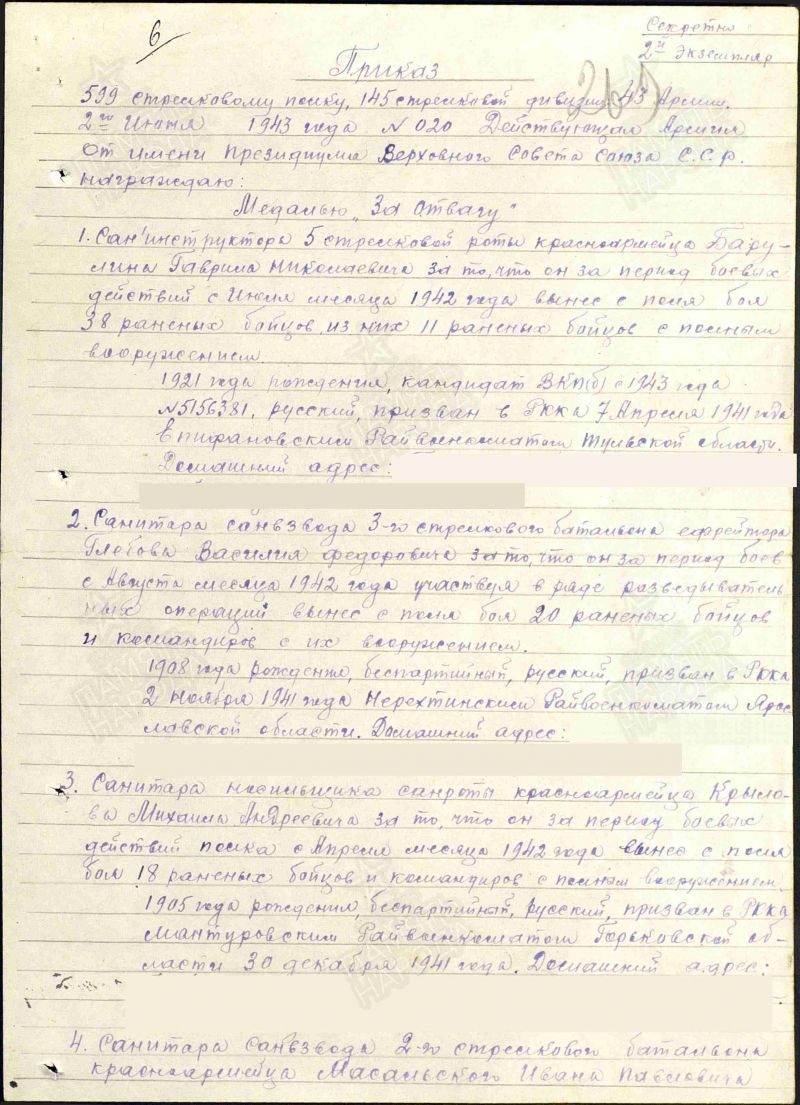 6
Секретно
2й Экземпляр
Приказ
599 стрелковому полку, 145 стрелковой дивизии 43 Армии.
2го Июня 1943 года N 020 Действующая Армия
От имени Президиума Верховного Совета Союза С.С.Р.
награждаю:
Медалью "За отвагу"
1. Сан'инструктора 5 стрелковой роты красноармейца Бару-
лина Гаврила Николаевича за то, что он за период боевых
действий с Июля месяца 1942 года вынес с поля боя
38 раненых бойцов, из них 11 раненых бойцов с полным
вооружением.
1921 года рождения, кандидат ВКП(б) с 1943 года
N5156381, русский, призван в РККА 7 Апреля 1941 года
Епифановским Райвоенкоматом Тульской области.
Домашний адрес:
2. Санитара санвзвода 3-го стрелкового батальона ефрейтора
Глебова Василия Федоровича за то, что он за период боев
с Августа месяца 1942 года участвуя в ряде разведыватель
ных операций вынес с поля боя 20 раненых бойцов
и командиров с их вооружением.
1908 года рождения, беспартийный, русский, призван в РККА
2 ноября 1941 года Нерехтинским Райвоенкоматом Яросс
лавской области. Домашний адрес:
3. Санитара носильщика санроты красноармейца Крыло-
ва Михаила Андреевича за то, что он за период боевых
действий полка с Апреля месяца 1942 года вынес с поля
боя 18 раненых бойцов и командиров с полным вооружением.
1905 года рождения, беспартийный, русский, призван в РККА
Мантуровским Райвоенкоматом Горьковской об-
ласти 30 декабря 1941 года. Домашний адрес:
4. Санитара санвзвода 2-го стрелкового батальона
красноармейца Масальского Ивана Павловича